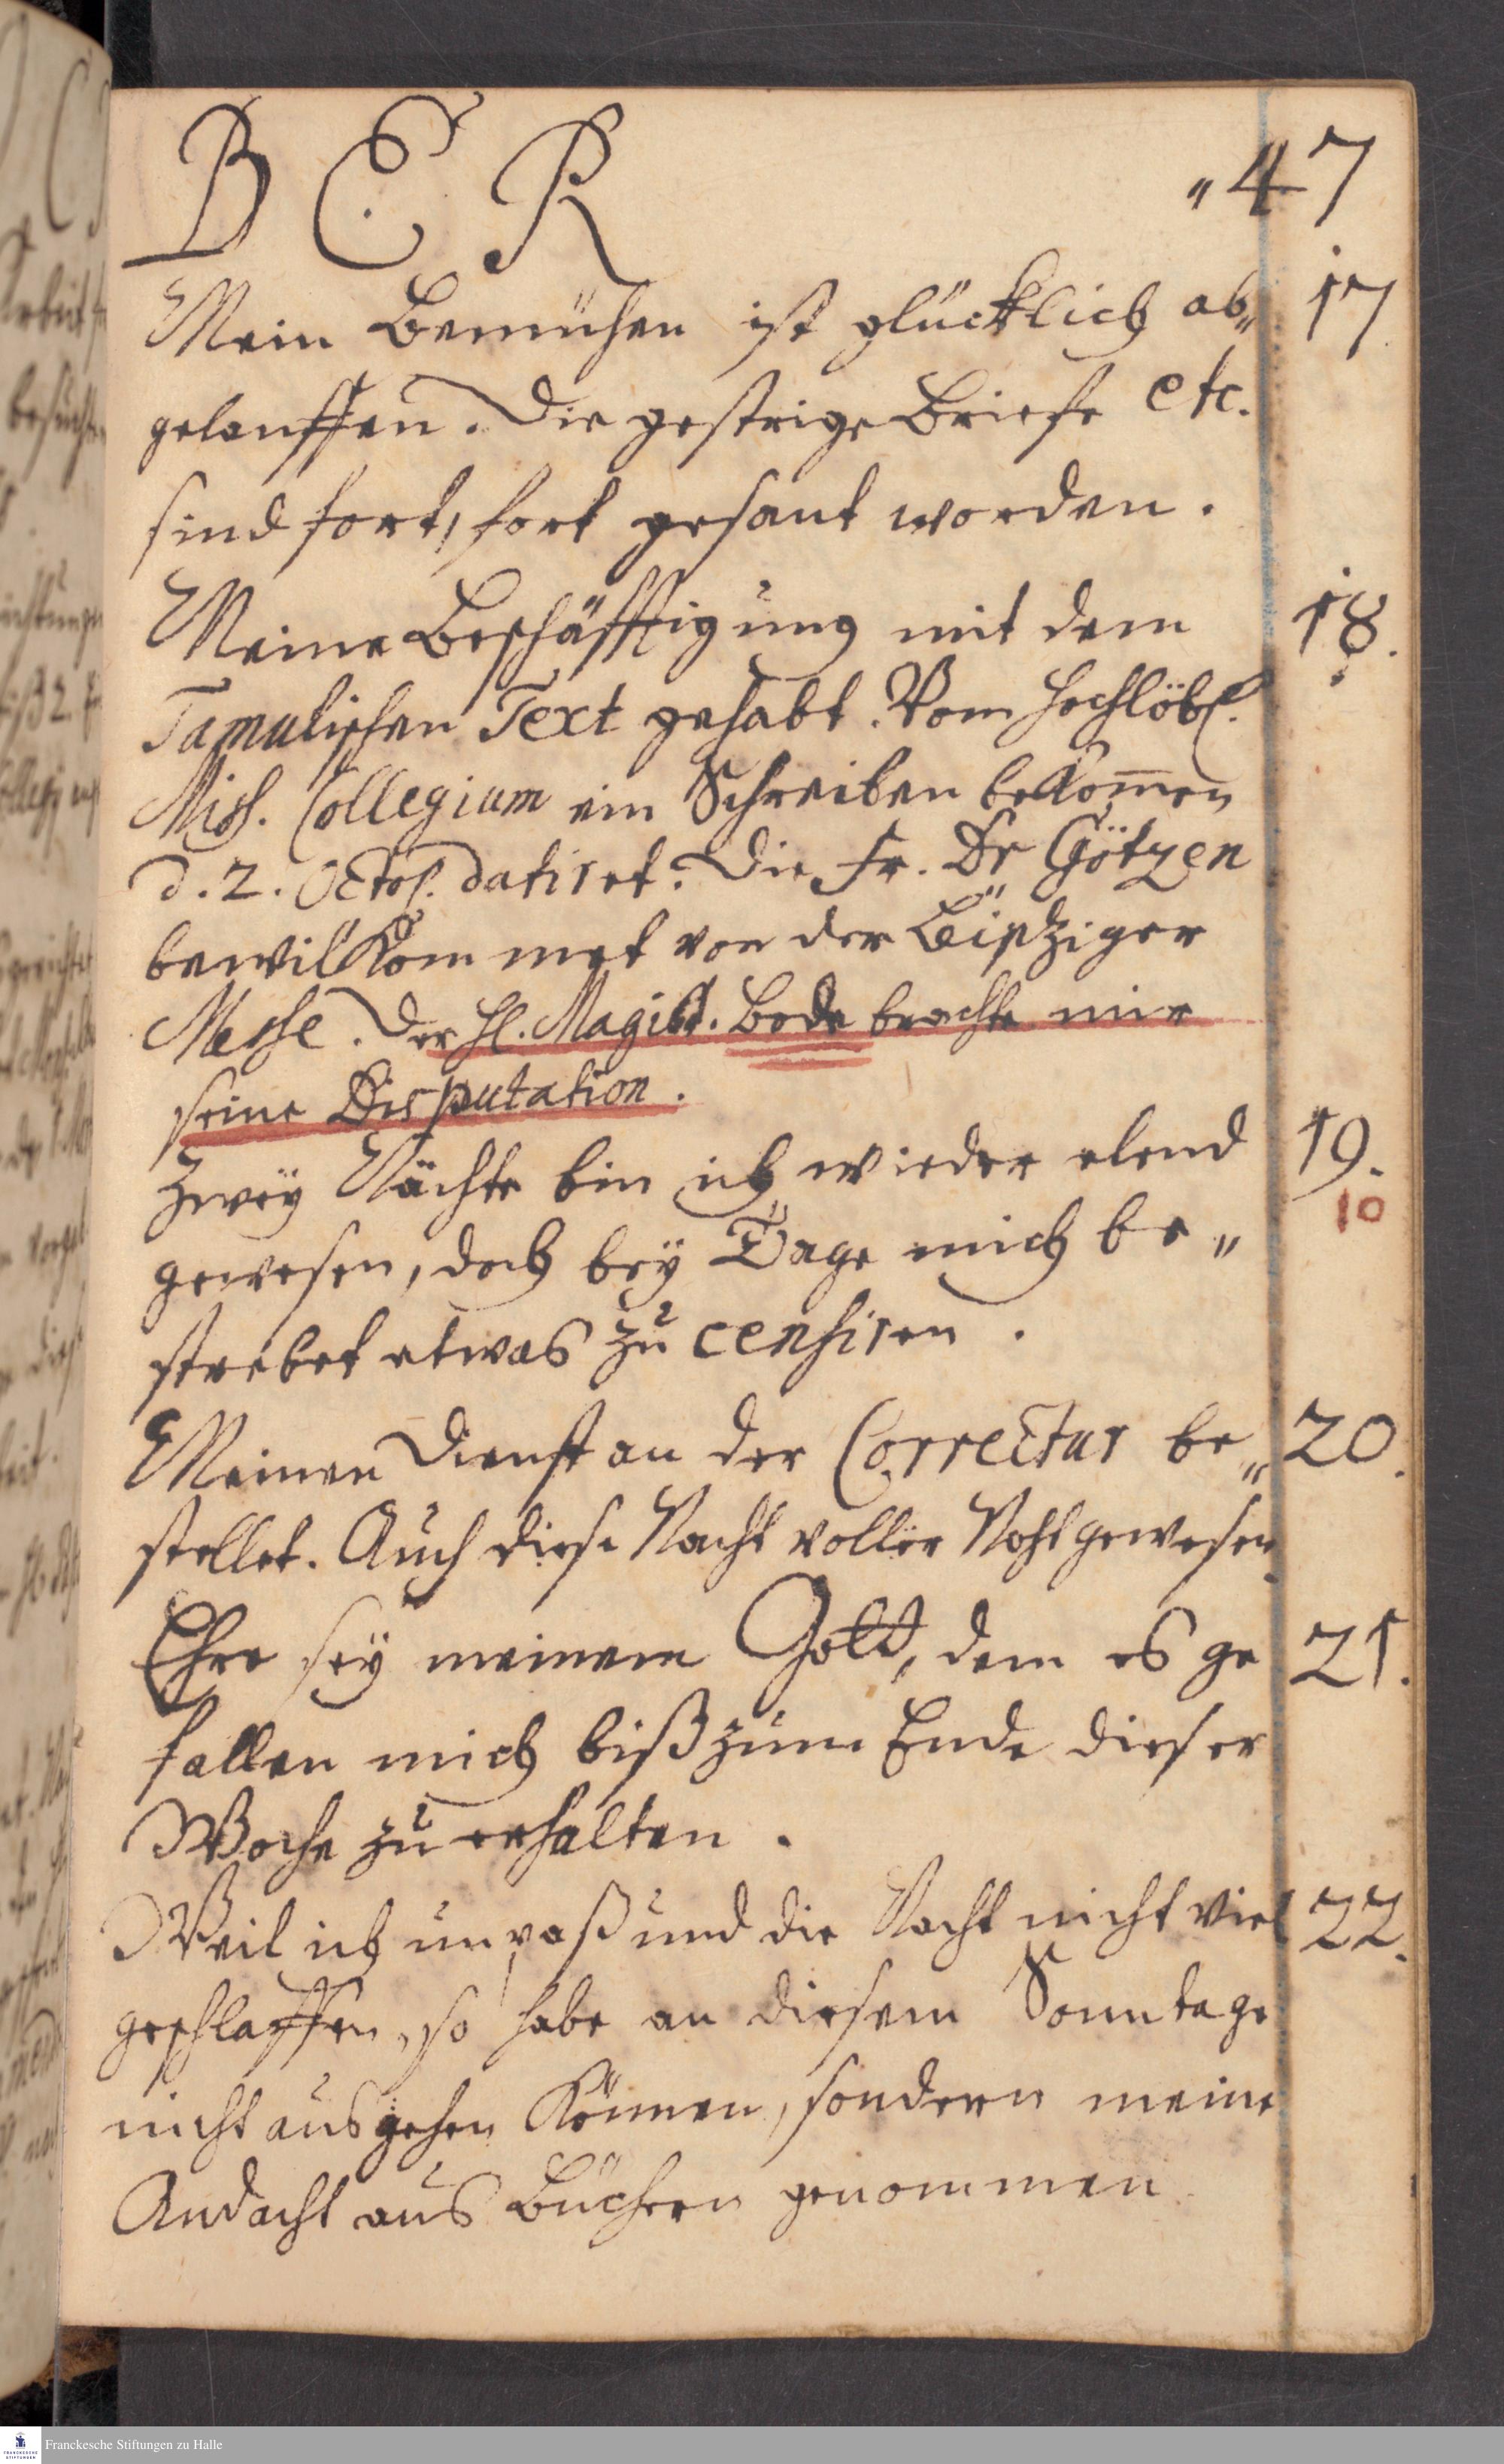 B E R
„ 47
Mein Bemühen ist glücklich ab„ 17
gelauffen. Die gestrige Briefe etc.
sind fort, fort gesant worden.
Meine Beschäfftigung mit dem 18.
Tamulischen Text gehabt. Vom Hochlöbl.
Miss. Collegium ein Schreiben bekom̅en
d. 2. Octob. datiret. Die Fr. Dr Götzen
bewillkommet von der Leipziger
Messe. Der Hl. Magist. Bode brachte mir
seine Disputation.
Zwey Nächte bin ich wieder elend 19.
10
gewesen, doch bey Tage mich be„
strebet etwas zu censiren.
Meinen Dienst an der Correctur be„ 20.
stellet. Auch diese Nacht voller Noht gewesen.
Ehre sey meinem Gott, dem es ge 21.
fallen mich biß zum Ende dieser
Woche zu erhalten.
Weil ich unpaß und die Nacht nicht viel 22.
geschlaffen, so habe an diesem Sonntage
nicht ausgehen können, sondern meine
Andacht aus Büchern genommen.
Franckesche Stiftungen zu Halle